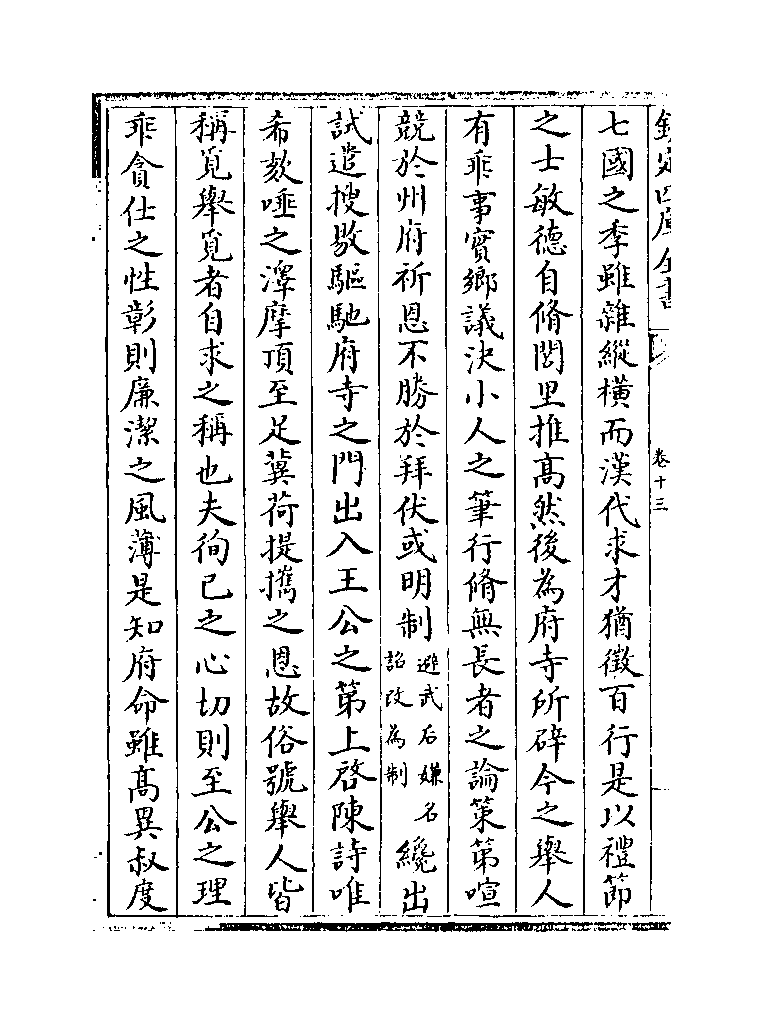 欽定四庫全書
卷十三
七國之季雖雜縱橫而漢代求才猶徵百行是以禮節
之士敏德自脩閭里推髙然後為府寺所辟今之舉人
有乖事實鄉議決小人之筆行脩無長者之論策第喧
競於州府祈恩不勝於拜伏或明制避武后嫌名詔改為制纔出
試遣搜敭驅馳府寺之門出入王公之第上啓陳詩唯
希欬唾之澤摩頂至足冀荷提攜之恩故俗號舉人皆
稱覓舉覓者自求之稱也夫徇已之心切則至公之理
乖貪仕之性彰則廉潔之風薄是知府命雖髙異叔度